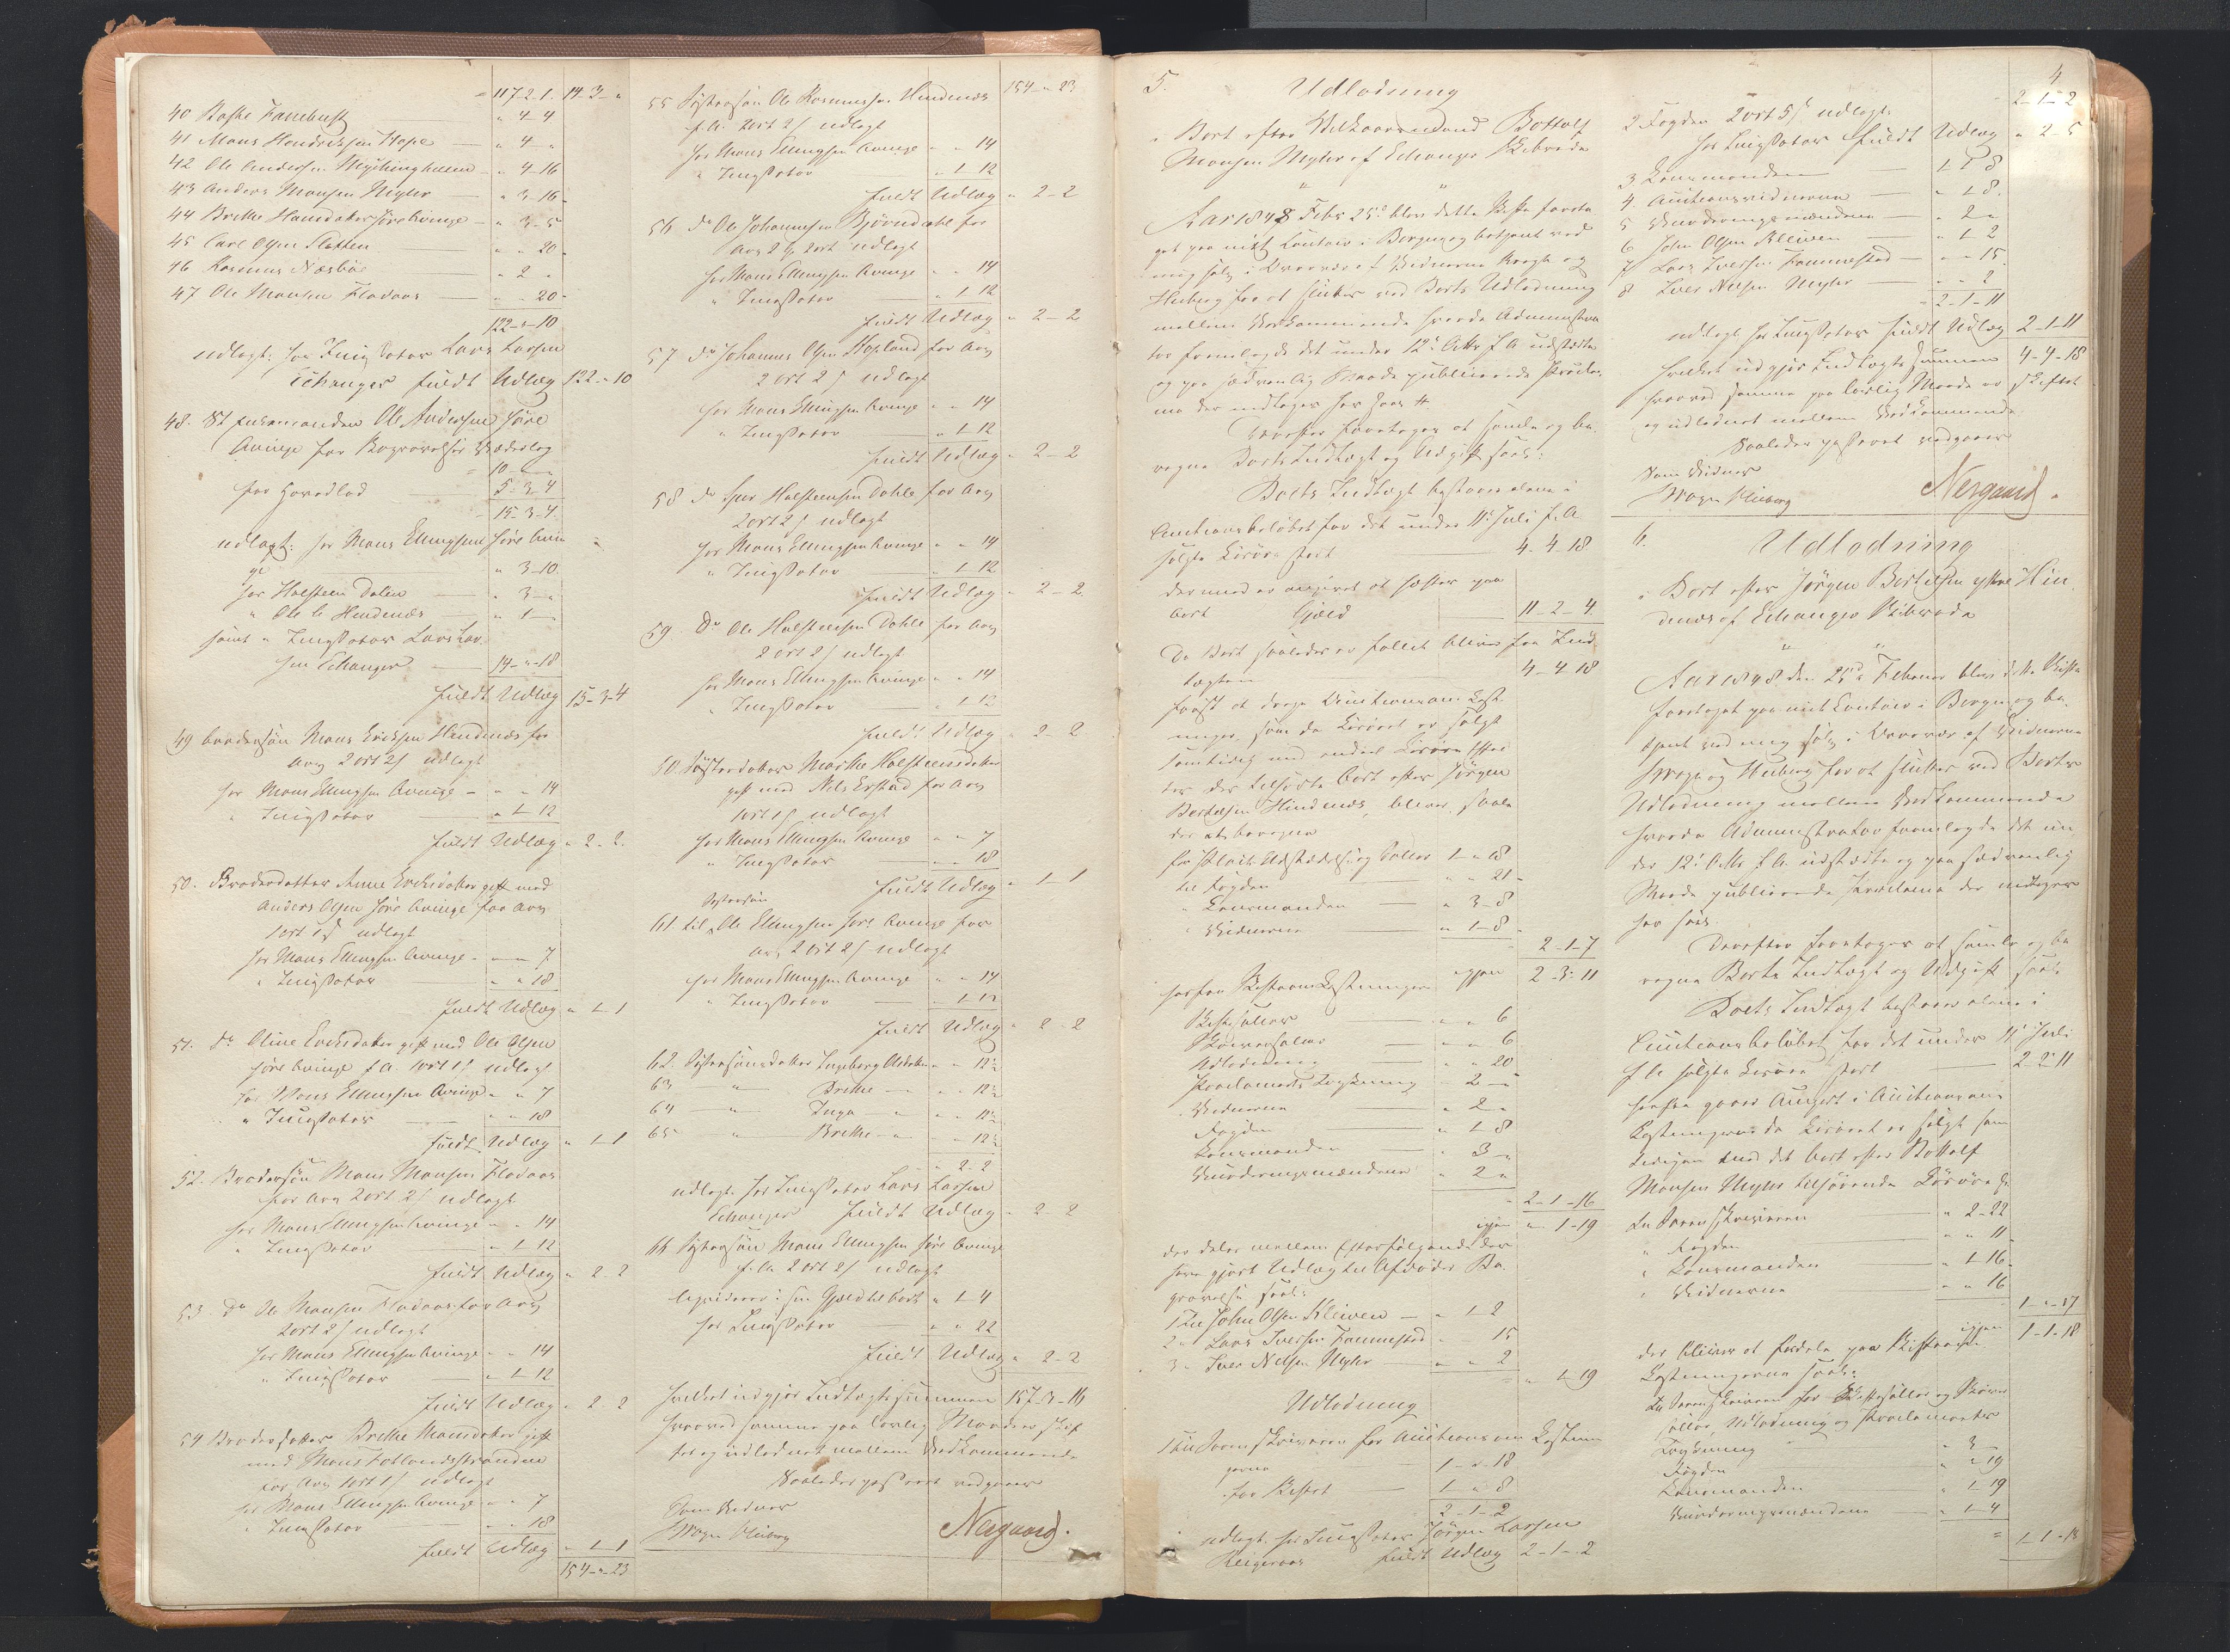 " 117-2-1. 14-3-"
40 Baste Fanebust " 4-4
41 Mons Hendriksen Hope " 4-"
42 Ole Andersen " 4-16
43 Anders Monsen Myhr " 3-16
44 Brithe Hansdatter Høre Qvinge " 3-5
45 Carl Olsen Sletten " " 20
46 Rasmus Næsbø " 2 "
47 Ole Monsen Flodaas " " 20
122-"-10
udlagt: hos Inqvisitor Lars Larsen
Echanger fuldt Udlæg 122-"-10
48. Ole Andersen Høre
Qvinge for Begravelses Vederlag
10-"-"
for Hovedlod 5-3-4
15-3-4
udlagt: hos Mons Ellingsen Høre Qvin
ge " 3-10
hos Holsteen Dalen " 3-"
" Ole Hindenæs " 1-"
samt " Inqvisitor Lars Lar
sen Echanger 14-"-18
fuldt Udlæg 15-3-4
49 Brodersøn Mons Ericksen Hindenæs for
Arv 2 ort 2 s udlagt
hos Mons Ellingsen Qvinge " " 14
" Inqvisitor " 1-12
fuldt Udlæg " 2-2
50. Broderdatter Anne Ericksdatter gift med
Anders Olsen Høre Qvinge for Arv
1 ort 1 s udlagt
hos Mons Ellingsen Qvinge " " 7
" Inqvisitor " " 18
fuldt Udlæg " 1-1
51. do Oline Ericksdatter gift med Ole Olsen
Høre Qvinge f. A. 1 ort 1 s udlagt
hos Mons Ellingsen Qvinge " " 7
" Inqvisitor " " 18
fuldt Udlæg " 1-1
52. Brodersøn Mons Monsen Flodaas
for Arv 2 ort 2 s udlagt
hos Mons Ellingsen Qvinge " " 14
" Inqvisitor " 1-12
fuldt Udlæg " 2-2
53. do Ole Monsen Flodaas for Arv
2 ort 2 s udlagt
hos Mons Ellingsen Qvinge " " 14
" Inqvisitor " 1-12
fuldt Udlæg " 2-2
54 Broderdatter Brithe Monsdatter gift
med Mons
for Arv 1 ort 1 s udlagt
hos Mons Ellingsen Qvinge " " 7
" Inqvisitor " " 18
fuldt Udlæg " 1-1
154-"-23
154-"-23
55 Søstersøn Ole Rasmussen Hindenæs
f. A. 2 ort 2 s udlagt
hos Mons Ellingsen Qvinge " " 14
" Inqvisitor " 1-12
fuldt Udlæg " 2-2
56 do Ole Johannesen Bjørndahl for
Arv 2 ort 2 s udlagt
hos Mons Ellingsen Qvinge " " 14
" Inqvisitor " 1-12
fuldt Udlæg " 2-2
57 do Johannes Olsen Hopland for Arv
2 ort 2 s udlagt
hos Mons Ellingsen Qvinge " " 14
" Inqvisitor " 1-12
fuldt Udlæg " 2-2
58 do Iver Holsteensen Dahle for Arv
2 ort 2 s udlagt
hos Mons Ellingsen Qvinge " " 14
" Inqvisitor " 1-12
fuldt Udlæg " 2-2
59 do Ole Holsteensen Dahle for Arv
2 ort 2 s udlagt
hos Mons Ellingsen Qvinge " " 14
" Inqvisitor " 1-12
fuldt Udlæg " 2-2
60. Søsterdatter Marthe Holsteensdatter
gift med Nils for Arv
1 ort 1 s udlagt
hos Mons Ellingsen Qvinge " " 7
" Inqvisitor " " 18
fuldt Udlæg " 1-1
Søstersøn
61. til Ole Ellingsen Høre Qvinge for
Arv 2 ort 2 s udlagt
hos Mons Ellingsen Qvinge " " 14
" Inqvisitor " 1-12
fuldt Udlæg " 2-2
62. Søstersønsdatter Ingeborg Olsdatter " " 12½
63 " Brithe " " 12½
64 " Inga " " " 12½
65 " Brithe " " 12½
" 2-2
udlagt hos Inqvisitor Lars Larsen
Echanger fuldt Udlæg " 2-2
66 Søstersøn Mons Ellingsen Høre Qvinge
f. A. 2 ort 2 s udlagt
liqvideres i sin Gjæld til Boet " 1-4
hos Inqvisitor " " 22
fuldt Udlæg " 2-2
hvilket udgjør Indtægtssummen 157-3-16
hvorved samme paa lovlig Maade er skif
tet og udlodnet mellem Vedkommende
Saaledes passeret vedgaaer
Som Vidner
Krogh Heiberg Nergaard.
5. Udlodning
i Boet efter Vilkaarsmand Bottolf
Monsen Myhr af Echanger Skibrede
" "
Aar 1848 Febr 25d blev dette Skifte foreta
get paa mit Contoir i Bergen og betjent ved
mig selv i Overvær af Vidnerne Krogh og
Heiberg for at sluttes ved Boets Udlodning
mellem Vedkommende hvorda Administra
tor fremlagde det under 12te f. A. udstædte
og paa sædvanlig Maade publicerede Procla
ma der indtages her saal #
Derefter foretages at samle og be
regne Boets Indtægt og Udgift saal:
Boets Indtægt bestaaer alene i
Auctionsbeløbet for det under 11te Juli f. A.
solgte Løsøre stort 4-4-18
der mod er angivet at hæfte paa
Boet Gjæld 11-2-4
Da Boet saaledes er fallit bliver fra Ind
tægten 4-4-18
først at drage Auctionsom kost
ninger, som da Løsøret er solgt
samtidig med endeel Løsøre
der tilhørte Boet efter Jørgen
Bertelsen Hindenæs, bliver saale
des at beregne
for Udstædelse og Sallær 1-"-18
til Fogden " " 21
" Lensmanden " 3-8
" Vidnerne " 1-8
2-1-7
igjen 2-3-11
herfra Skifteomkostninger
Skiftesallær " " 6
Skriversallær " " 6
Udlodning " " 20
Proclamaets Trykning " 2-"
Vidnerne " 2-"
Fogden " 1-8
Lensmanden " 3-"
Vurderingsmændene " 2-"
2-1-16
igjen " 1-19
der deles mellem Efterfølgende der
have gjort Udlæg til Afdødes Be
gravelse saal:
1 til John Olsen Kleiven " 1-2
2 " Lars Iversen Fammestad " " 15
3 " Iver Nilsen Myhr " " 2
" 1-19
Udlodning
1 til Sorenskriveren for Auctionsom kostnin
gerne 1-"-18
for Skiftet 1-"-8
2-1-2
udlagt hos Inqvisitor Jørgen Larsen
fuldt Udlæg 2-1-2
4
2-1-2
2 Fogden 2 ort 5 s udlagt
hos Inqvisitor fuldt Udlæg " 2-5
3 Lensmanden 1-1-8
4. Auctionsvidnerne " 1-8
5 Vurderingsmændene " 2-"
6 John Olsen Kleiven " 1-2
7 Lars Iversen Fammestad " " 15
8 Iver Nilsen Myhr " " 2
2-1-11
udlagt hos Inqvisitor fuldt Udlæg 2-1-11
hvilket udgjør Indtægtssummen 4-4-18
hvorved samme paa lovlig Maade er skiftet
og udlodnet mellem Vedkommende
Saaledes passeret vedgaaer
Som Vidner
Krogh Heiberg Nergaard.
6. Udlodning
i Boet efter Jørgen Bertelsen ytre Hin
denæs af Echanger Skibrede
" "
Aar 1848 den 25d Februar blev dette Skifte
foretaget paa mit Contoir i Bergen og be
tjent ved mig selv i Overvær af Vidnerne
Krogh og Heiberg for at sluttes ved Boets
Udlodning mellem Vedkommende
hvorda Administrator fremlagde det un
der 12te f. A. udstædte og paa sædvanlig
Maade publicerede Proclama der indtages
her saal.
Derefter foretages at samle og be
regne Boets Indtægt og Udgift saal:
Boets Indtægt bestaaer alene i
Auctionsbeløbet for det under 11te Juli
f. A. solgte Løsøre stort 2-2-11
herfra gaaer i Auctionsom
kostninger da Løsøret er solgt sam
tidigen med det Boet efter Bottolf
Monsen Myhr tilhørende Løsøre
til Sorenskriveren " 2-22
" Fogden " " 11
" Lensmanden " 1-16
" Vidnerne " " 16
1-"-17
igjen 1-1-18
der bliver at fordele paa Skifteom
kostningerne saal:
til Sorenskriveren for Skiftesallær og Skriver
sallær, Udlodning og Proclamaets
Trykning " 3-"
Fogden " " 19
Lensmanden " 1-19
Vurderingsmændene " 1-4
" 1-1-18